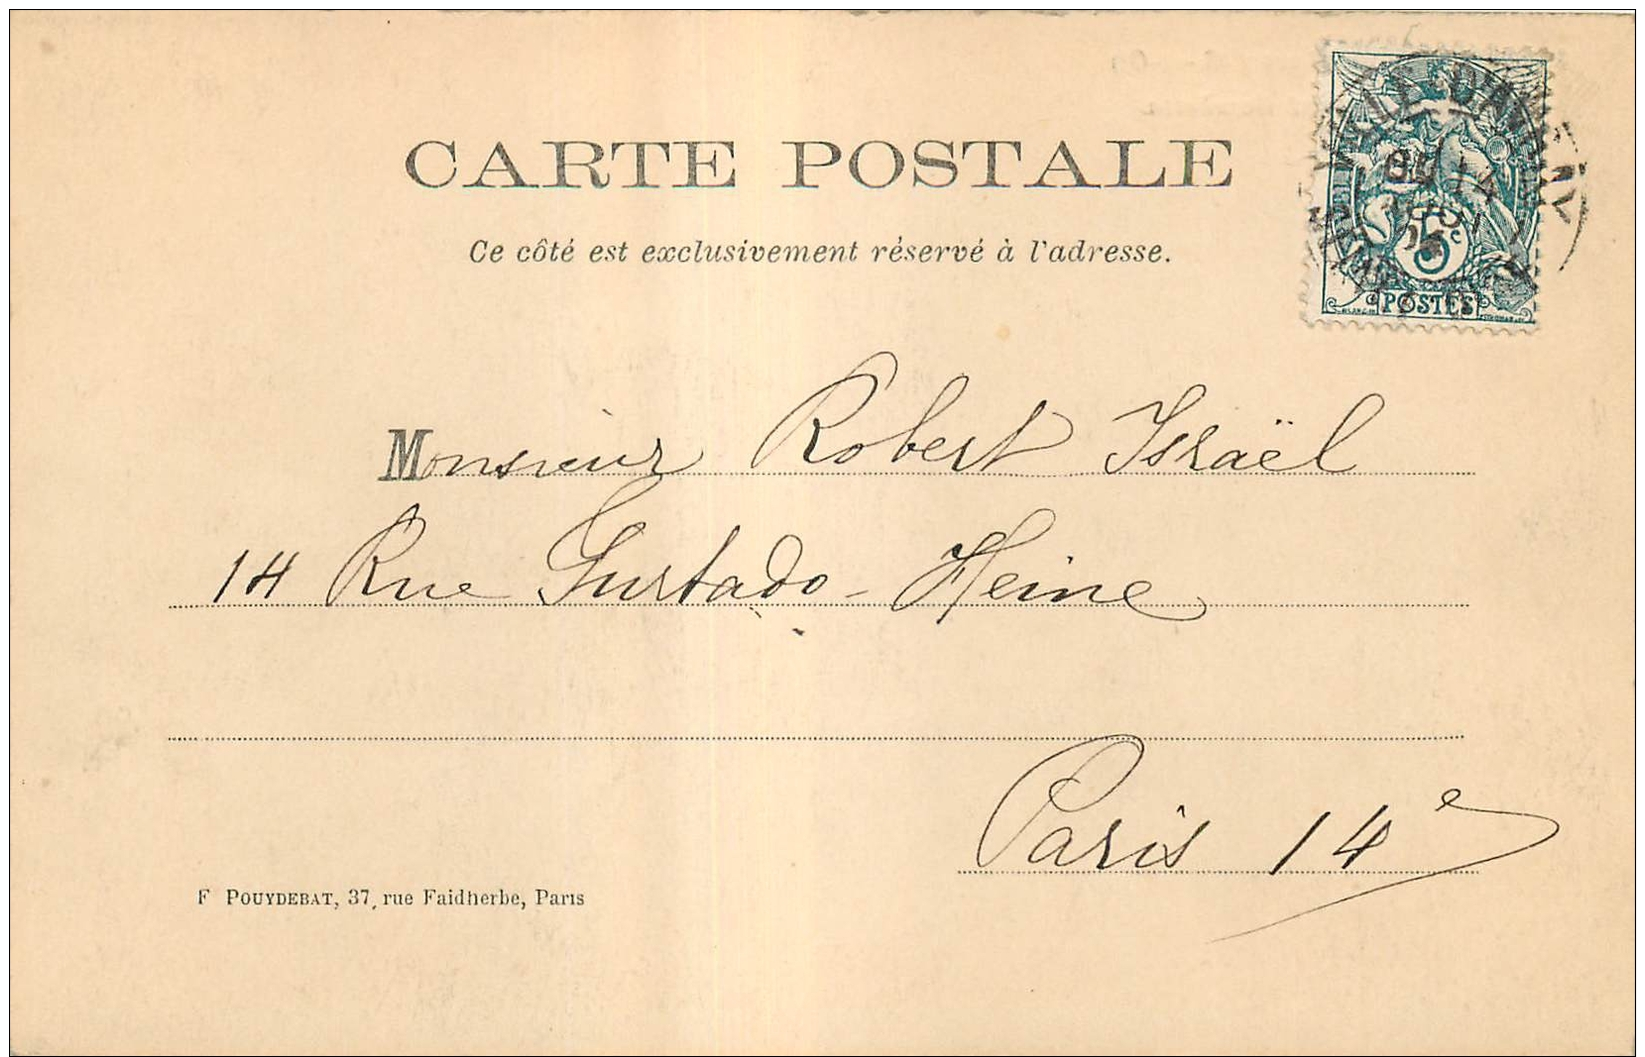 CARTE POSTALE
Ce côté est exclusivement réservé à l'adresse.
VILLE-D'AVRAY
5c
POSTES
Monsieur Robert Israël
14 Rue Furtado-Heine
Paris 14e
F POUYDEBAT, 37, rue Faidherbe, Paris